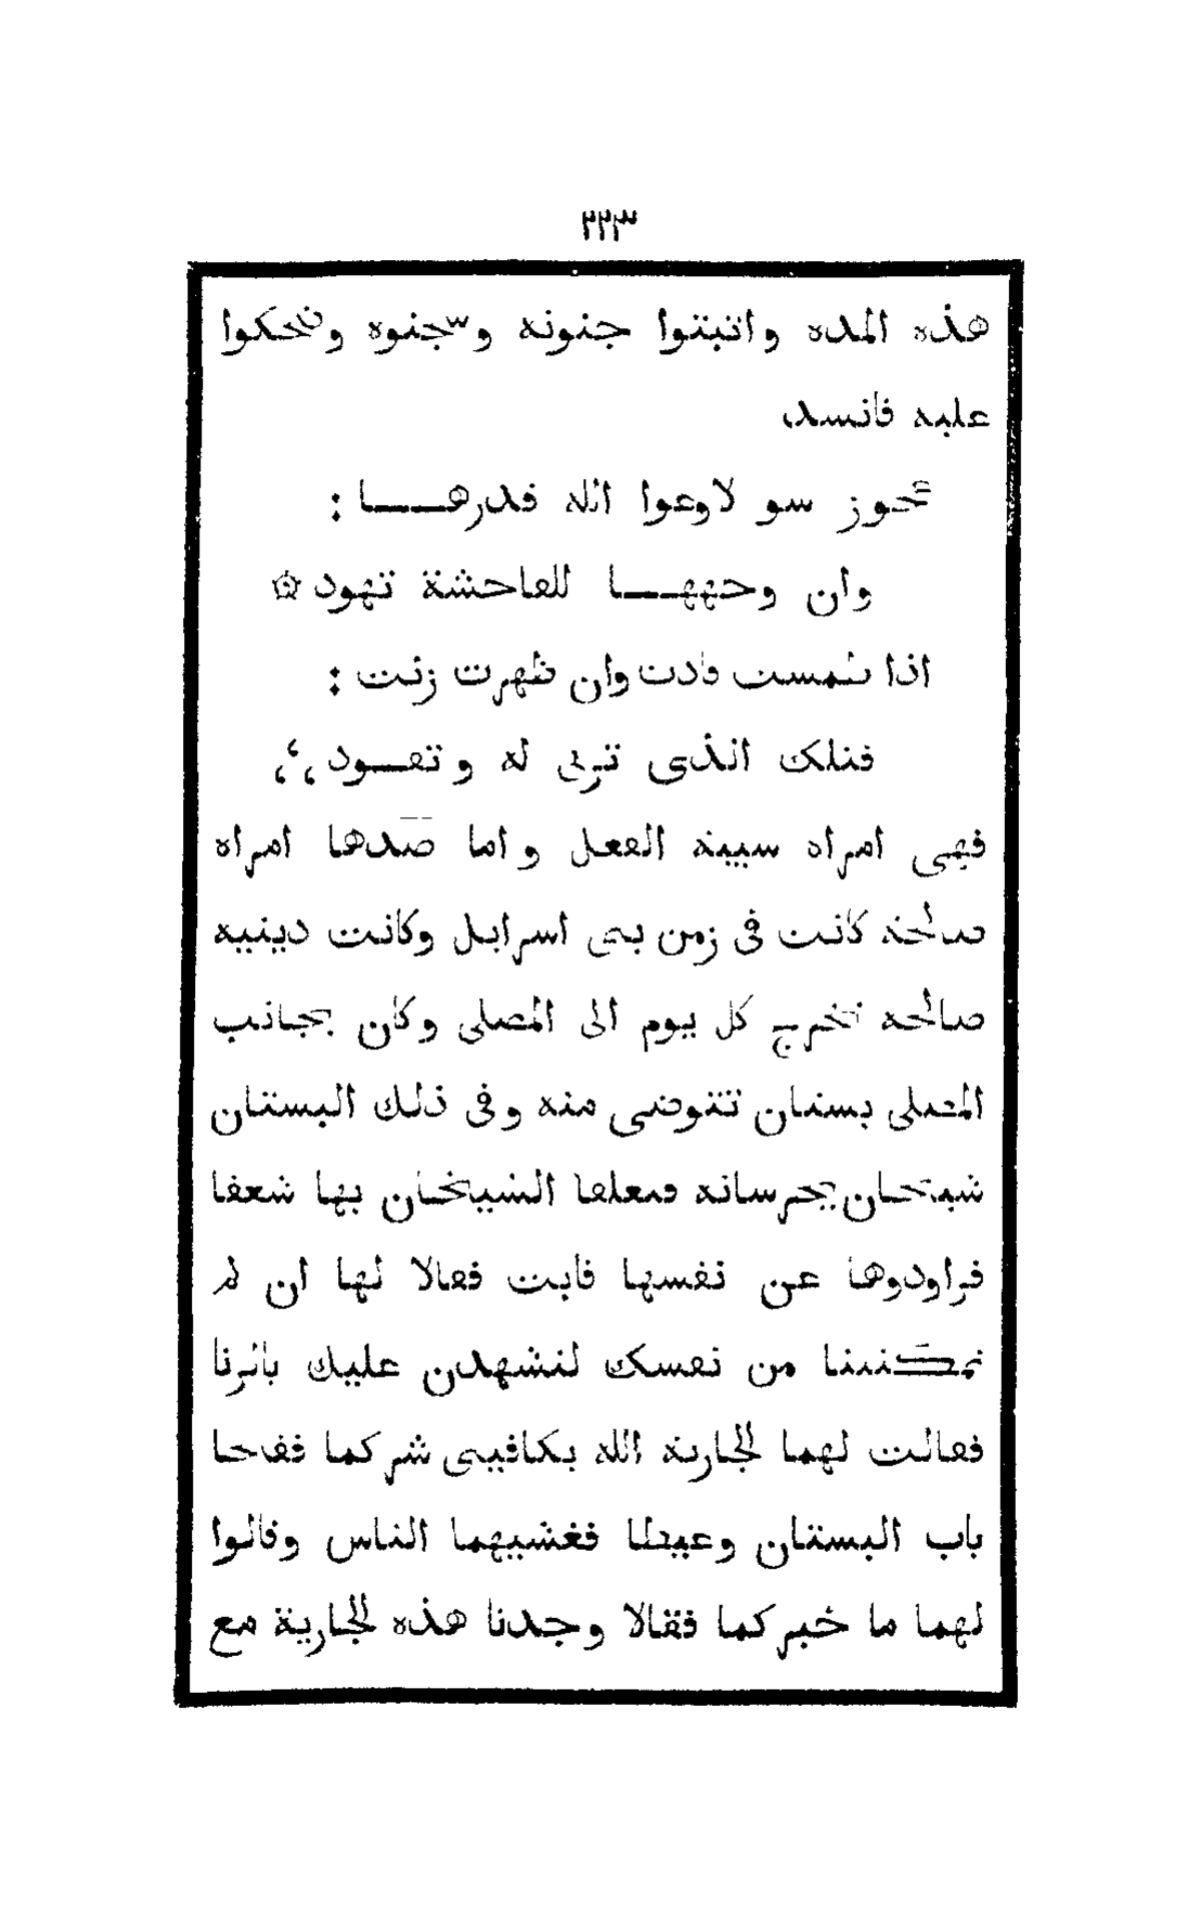 ٢٢٣
هذه المده واثبتوا جنونه وسجنوه وضحكوا
عليه فانسد،
عجوز سو لا وعوا الله قدرهـــا :
وان وجههـــا للفاحشة تهود ۞
اذا نمست قادت وان ظهرت زنت :
فتلك الذى تزنى له وتقـــود ،
فهى امراه سيينه الفعل واما ضدها امراه
صالحه كانت فى زمن بنى اسرايل وكانت دينيه
صالحه تخرج كل يوم الى المصلى وكان بجانب
المصلى بستان تتوضى منه وفى ذلك البستان
شيخان يحرسانه فتعلقا الشيخان بها شعفا
فراودوها عن نفسها فابت فقالا لها ان لم
تمكنينا من نفسك لنشهدن عليك بالزنا
فقالت لهما الجاريه الله يكافينى شركما ففتحا
باب البستان وعيطا فغشيهما الناس وقالوا
لهما ما خبركما فقالا وجدنا هذه الجارية مع